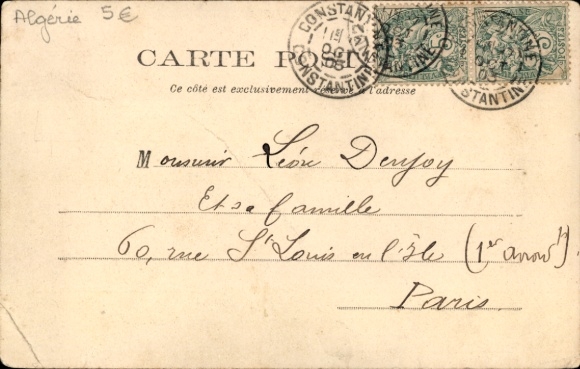 Algérie 5€
CONSTANTINE
CONSTANTINE
CARTE POSTALE
Ce côté est exclusivement réservé à l'adresse
Monsieur Léon Denjoy
Et sa famille
60, rue St Louis en l'Ile (1er arrondt)
Paris